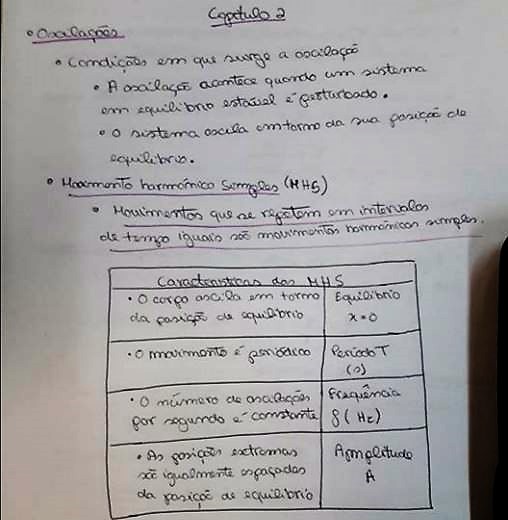 Capítulo 2
• Oscilações
• Condições em que surge a oscilação
• A oscilação acontece quando um sistema
em equilíbrio estável é perturbado.
• O sistema oscila em torno da sua posição de
equilíbrio.
• Movimento harmónico simples (MHS)
• Movimentos que se repetem em intervalos
de tempo iguais são movimentos harmónicos simples.
Características dos MHS
• O corpo oscila em torno Equilíbrio
da posição de equilíbrio x=0
• O movimento é periódico Período T
(s)
• O número de oscilações Frequência
por segundo é constante f (Hz)
• As posições extremas Amplitude
são igualmente espaçadas A
da posição de equilíbrio